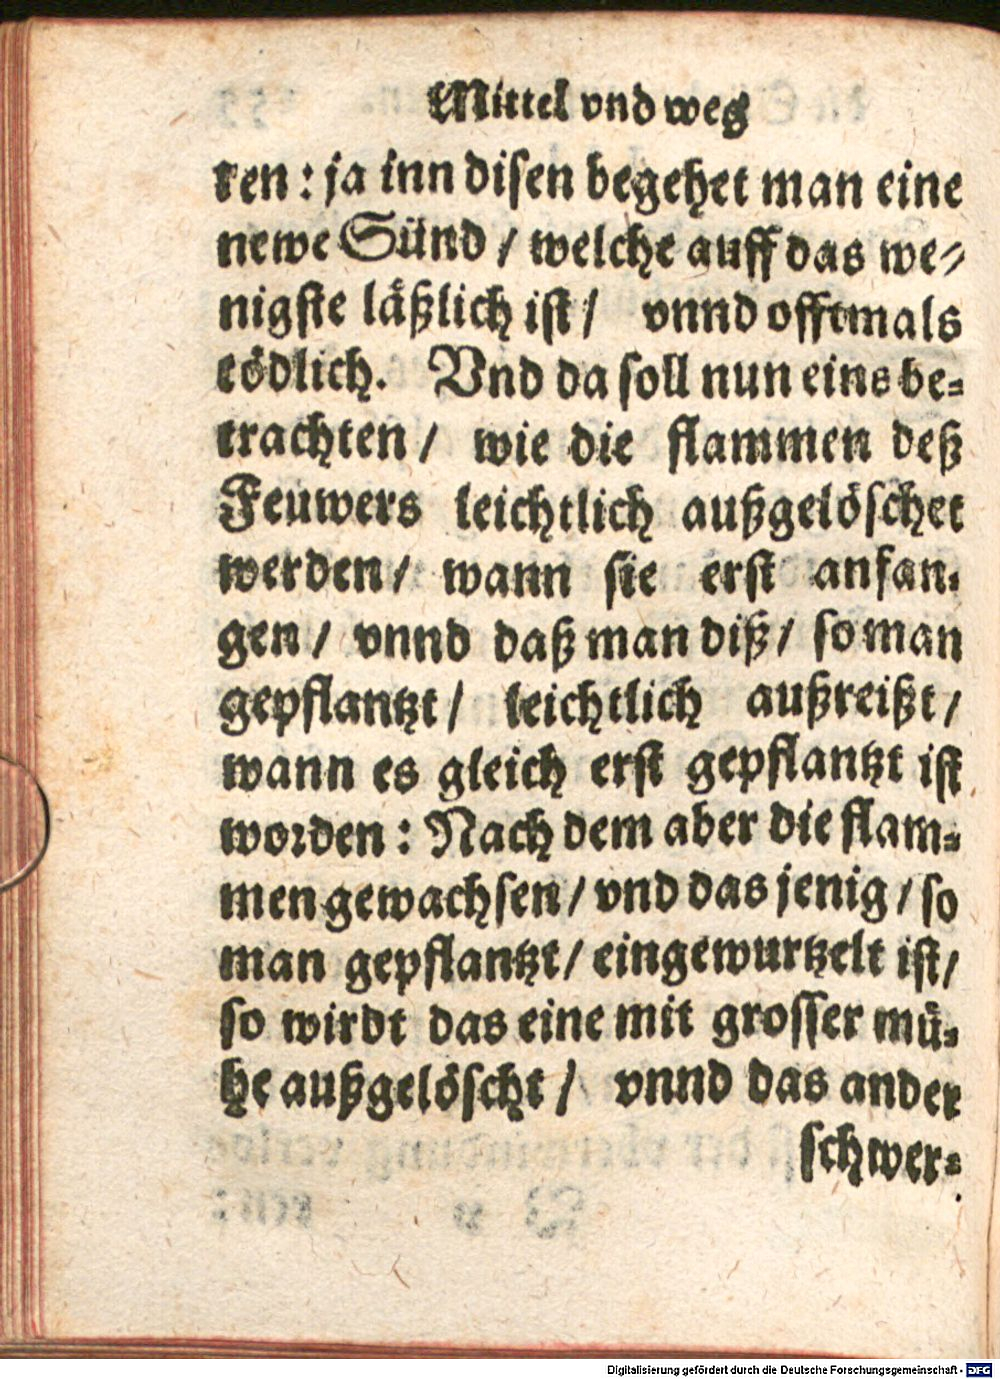 Mittel vnd weg
ren : ja inn disen begehet man eine
newe Sünd / welche auff das we-
nigste läßlich ist / vnnd offtmals
tödlich. Vnd da soll nun eins be-
trachten / wie die flammen deß
Feuwers leichtlich außgelöschet
werden / wann sie erst anfan-
gen / vnnd daß man diß / so man
gepflantzt / leichtlich außreißt /
wann es gleich erst gepflantzt ist
worden : Nach dem aber die flam-
men gewachsen / vnd das jenig / so
man gepflantzt / eingewurtzelt ist /
so wirdt das eine mit grosser mü-
he außgelöscht / vnnd das ander
schwer-
Digitalisierung gefördert durch die Deutsche Forschungsgemeinschaft - DFG